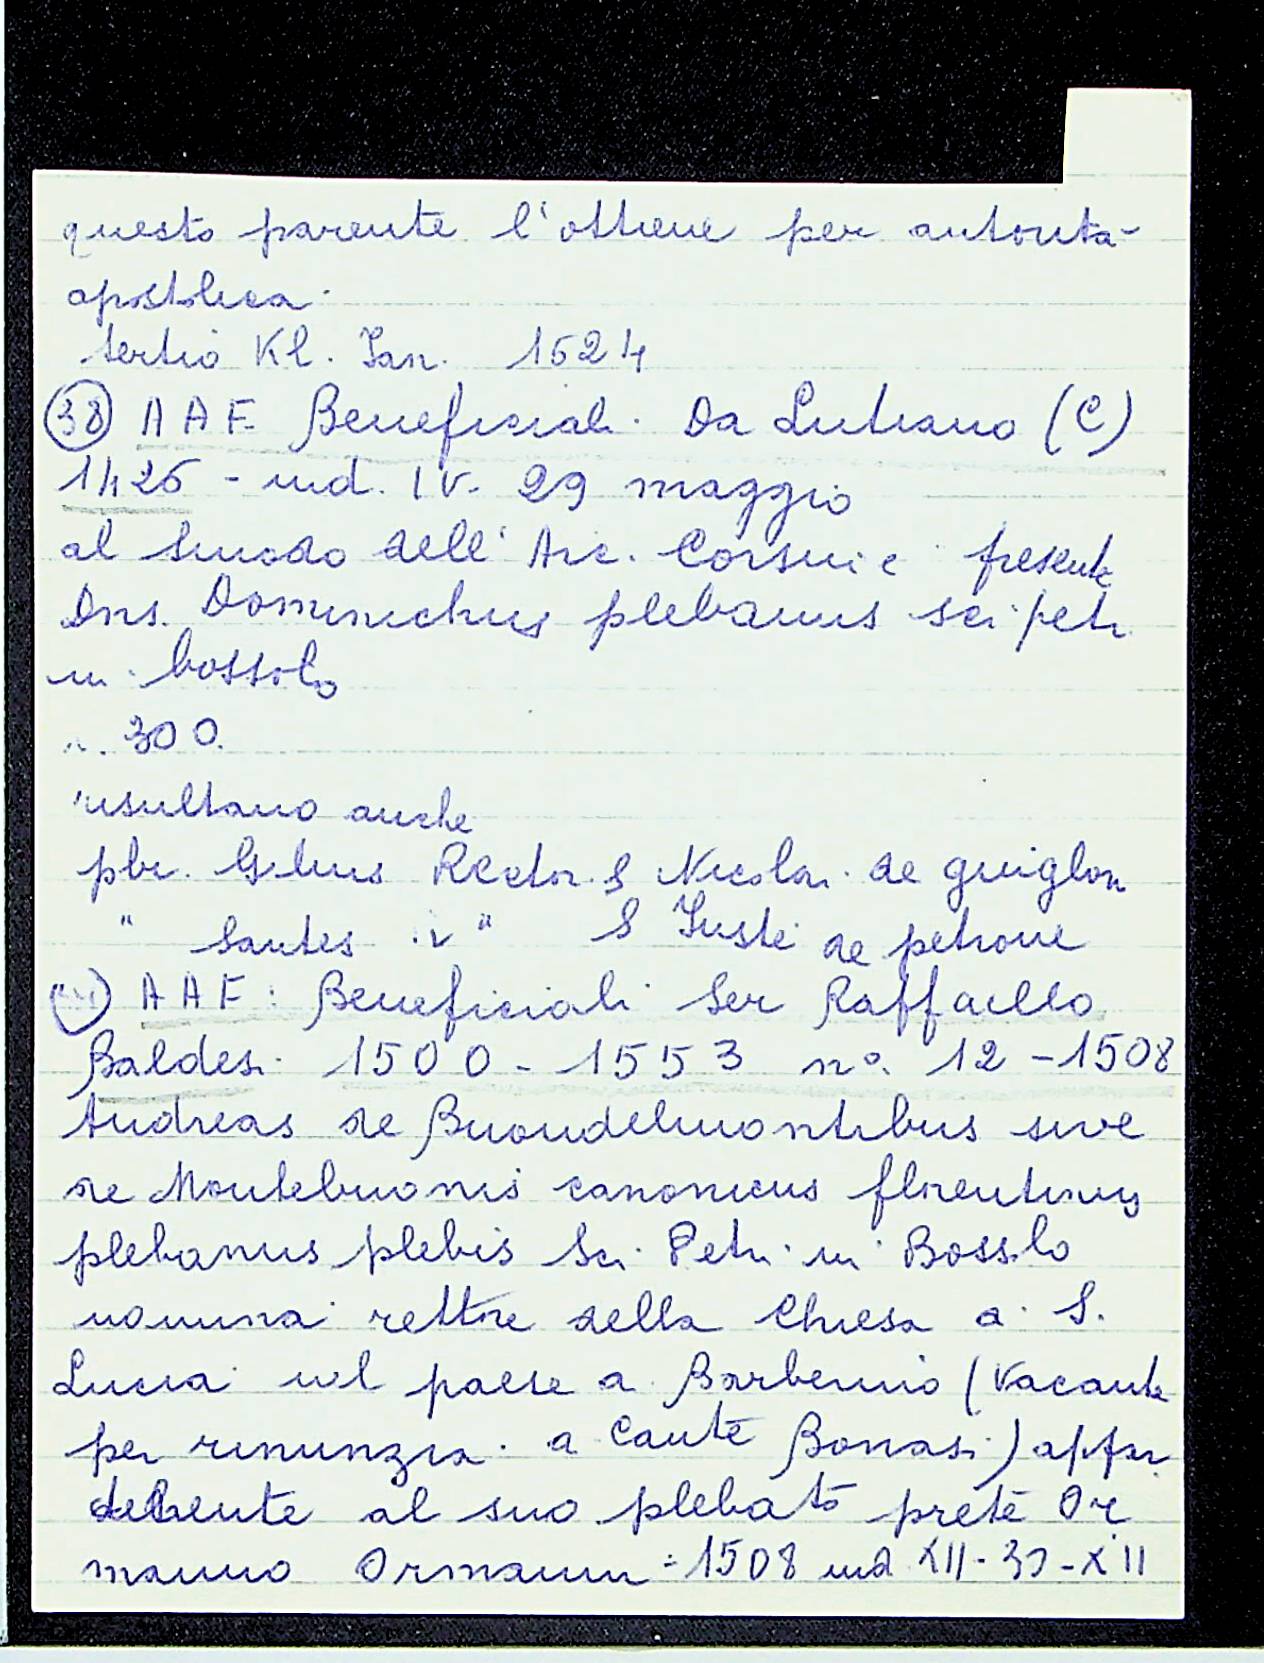 questo parente l'ottiene per autorità
apostolica.
tertio Kl. Jan. 1524
(38) A A F Beneficiali. Da Lutiano (C)
1426 - ind. IV. 29 maggio
al Sinodo dell'Arc. Corsini è presente
Dns. Dominichus plebanus sci petri
in bossolo
300.
risultano anche
pbr. Rector S Nicolai de
" Santes " S Juste de petrone
A A F: Beneficiali Ser Raffaello
Baldesi 1500 - 1553 n°. 12 - 1508
Andreas de Buondelmontibus sive
de Montebuonis canonicus florentinus
plebanus plebis Sci Petri in Bossolo
nomina rettore della Chiesa di S.
Lucia nel paese di Barberino (vacante
per rinunzia di Cante) appar
tenente al suo plebato prete Or
manno Ormanni = 1508 ind XII - XII